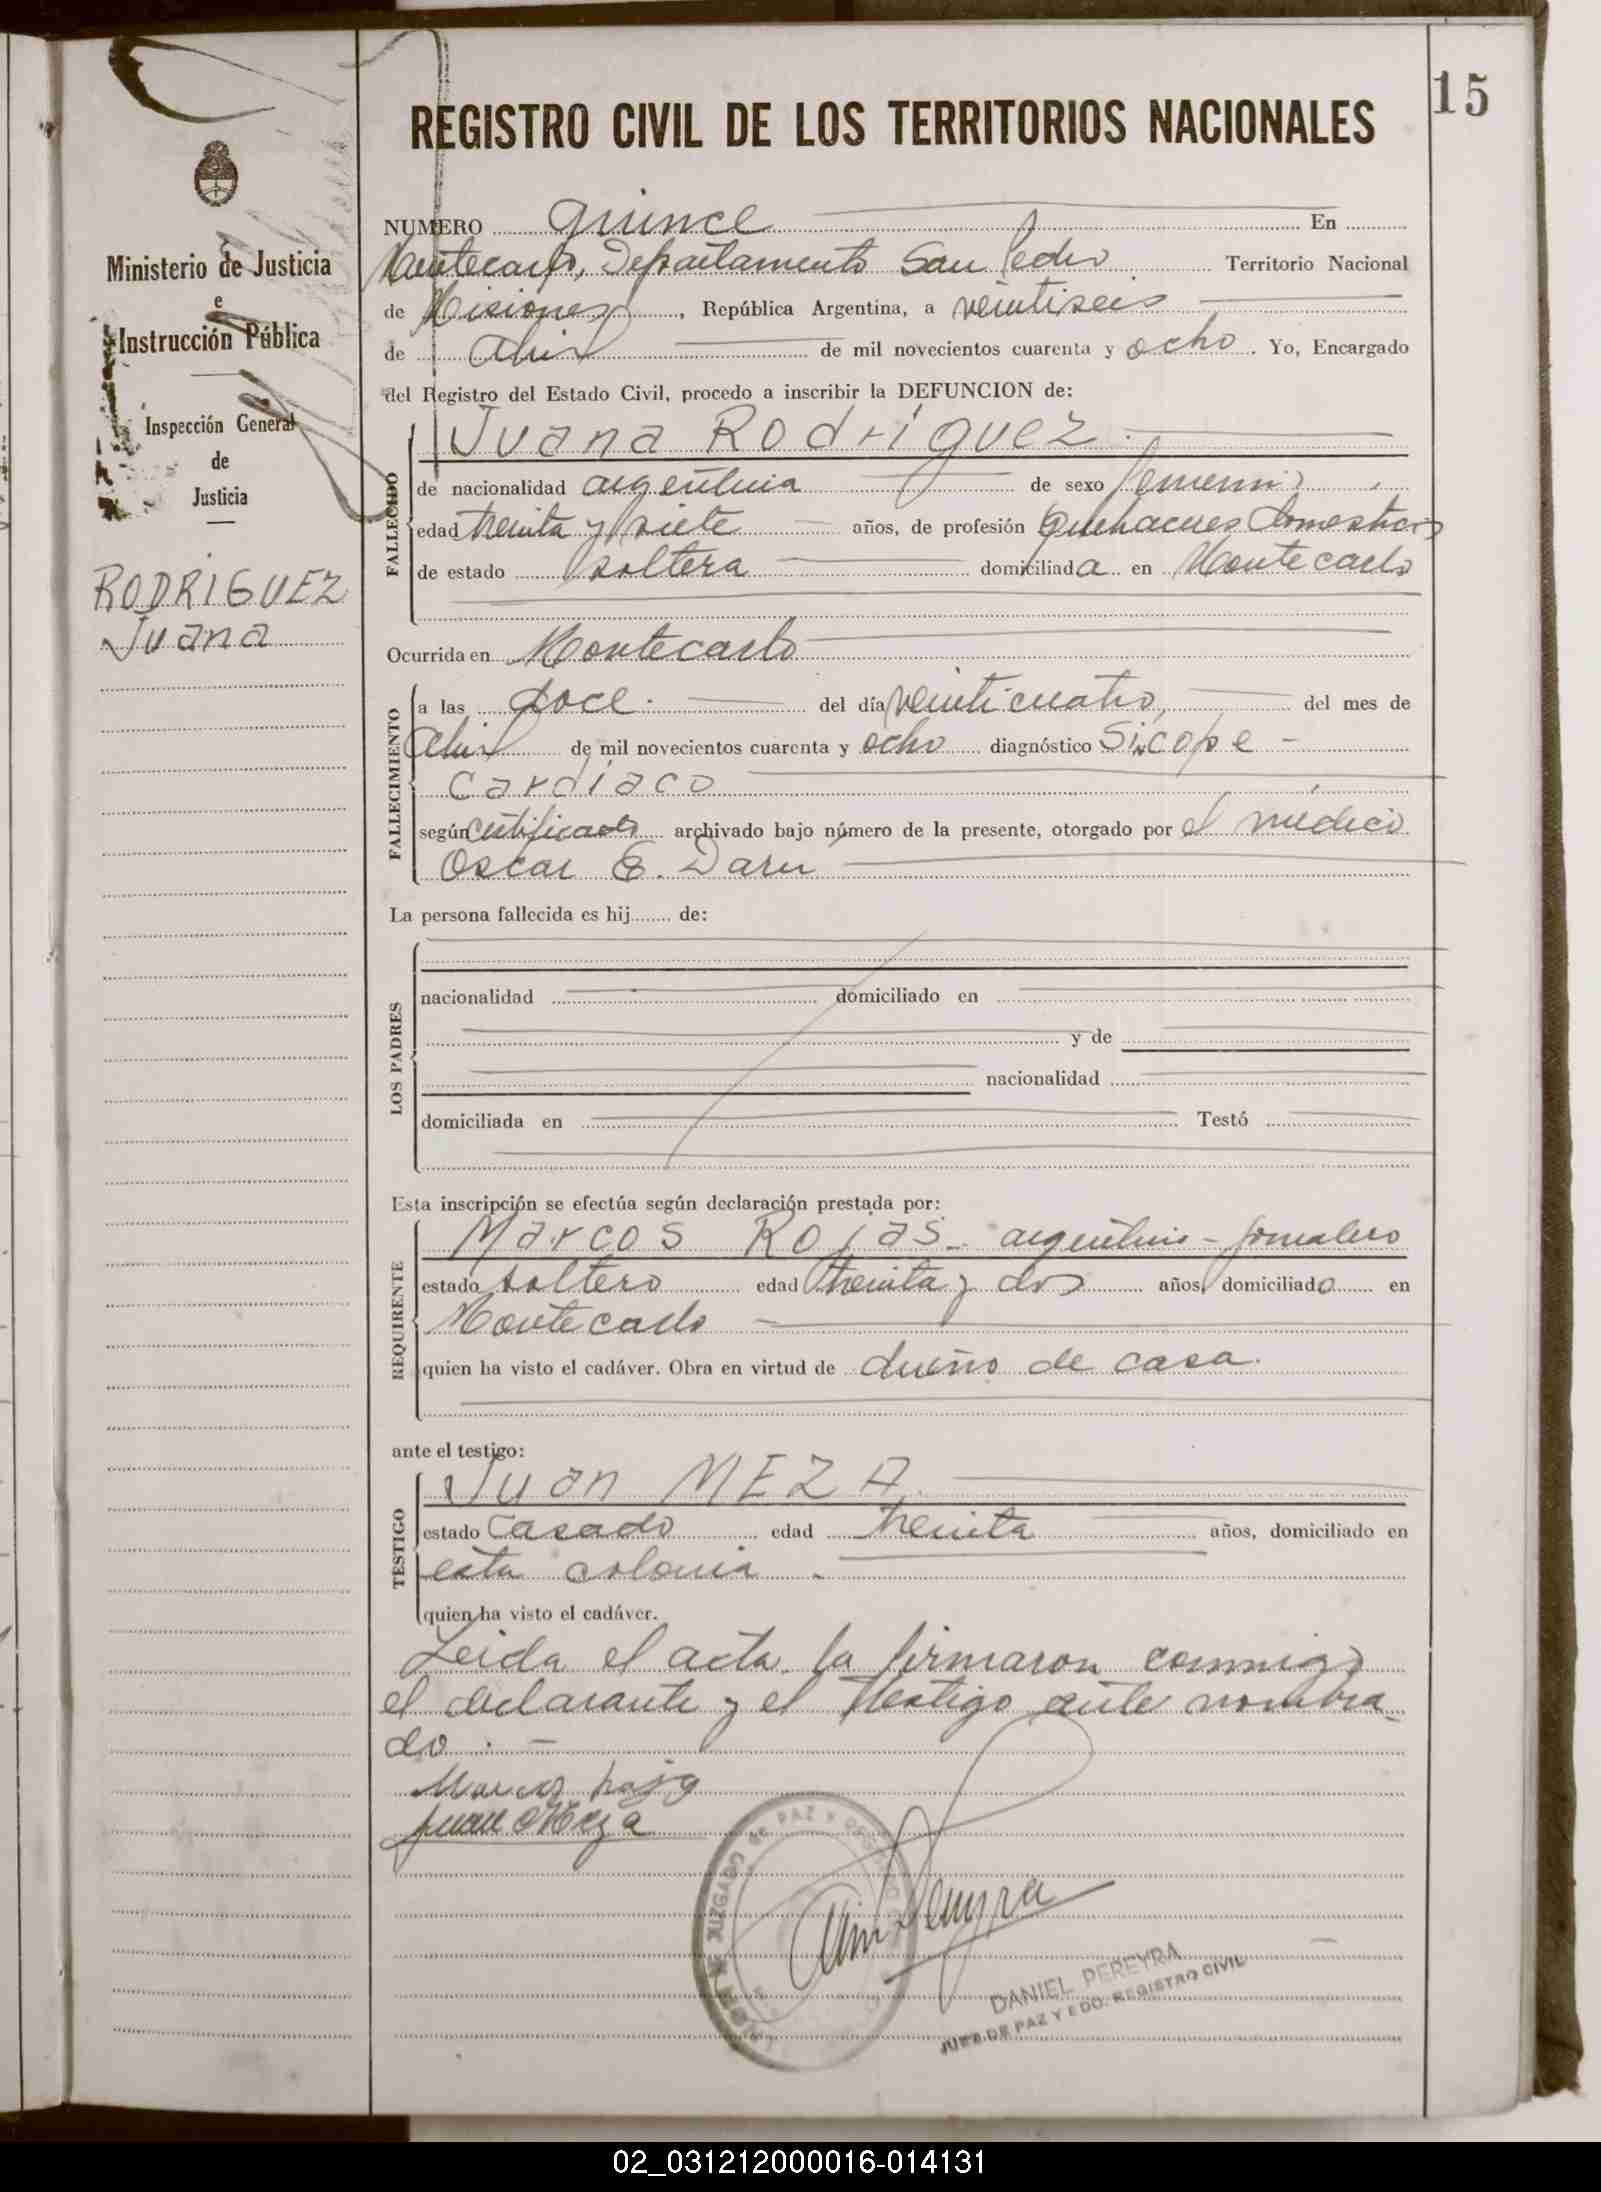 15
REGISTRO CIVIL DE LOS TERRITORIOS NACIONALES
Ministerio de Justicia
e
Instrucción Pública
Inspección General
de
Justicia
RODRIGUEZ
Juana
NUMERO quince En
Montecarlo, Departamento San Pedro Territorio Nacional
de Misiones, República Argentina, a veintiseis
de Abril de mil novecientos cuarenta y ocho. Yo, Encargado
del Registro del Estado Civil, procedo a inscribir la DEFUNCION de:
FALLECIDO
Juana Rodriguez.
de nacionalidad argentina de sexo femenino,
edad treinta y siete años, de profesión Quehaceres Domesticos
de estado soltera domiciliada en Montecarlo
Ocurrida en Montecarlo
FALLECIMIENTO
a las doce. del día veinticuatro, del mes de
Abril de mil novecientos cuarenta y ocho diagnóstico Sincope -
cardiaco
según certificado archivado bajo número de la presente, otorgado por el médico
Oscar E. Daru
La persona fallecida es hij........ de:
LOS PADRES
nacionalidad domiciliado en
y de
nacionalidad
domiciliada en Testó
Esta inscripción se efectúa según declaración prestada por:
REQUIRENTE
Marcos Rojas - argentino - jornalero
estado soltero edad treinta y dos años, domiciliado en
Montecarlo -
quien ha visto el cadáver. Obra en virtud de dueño de casa.
ante el testigo:
TESTIGO
Juan MEZA.
estado casado edad treinta años, domiciliado en
esta colonia.
quien ha visto el cadáver.
Leida el acta, la firmaron conmigo
el declarante y el testigo ante nombra-
do. -
Juan Meza
JUZGADO de PAZ Y
DANIEL PEREYRA
JUEZ DE PAZ Y EDO. REGISTRO CIVIL
02_031212000016-014131